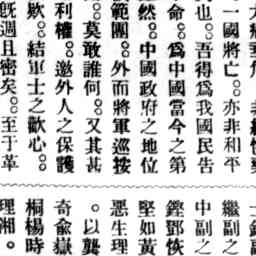 一國將亡。亦非和平
也。吾得爲我國民告
命。爲中國當今之第
然。中國政府之地位
範團。外而將軍巡按
。莫敢誰何。又其甚
利權。邀外人之保護
歟。結軍士之歡心。
旣週且密矣。至于革
繼副之
中副之
鏗鄧恢
堅如黃
惡生理
。以龔
奇兪嶽
桐楊時
理湘。